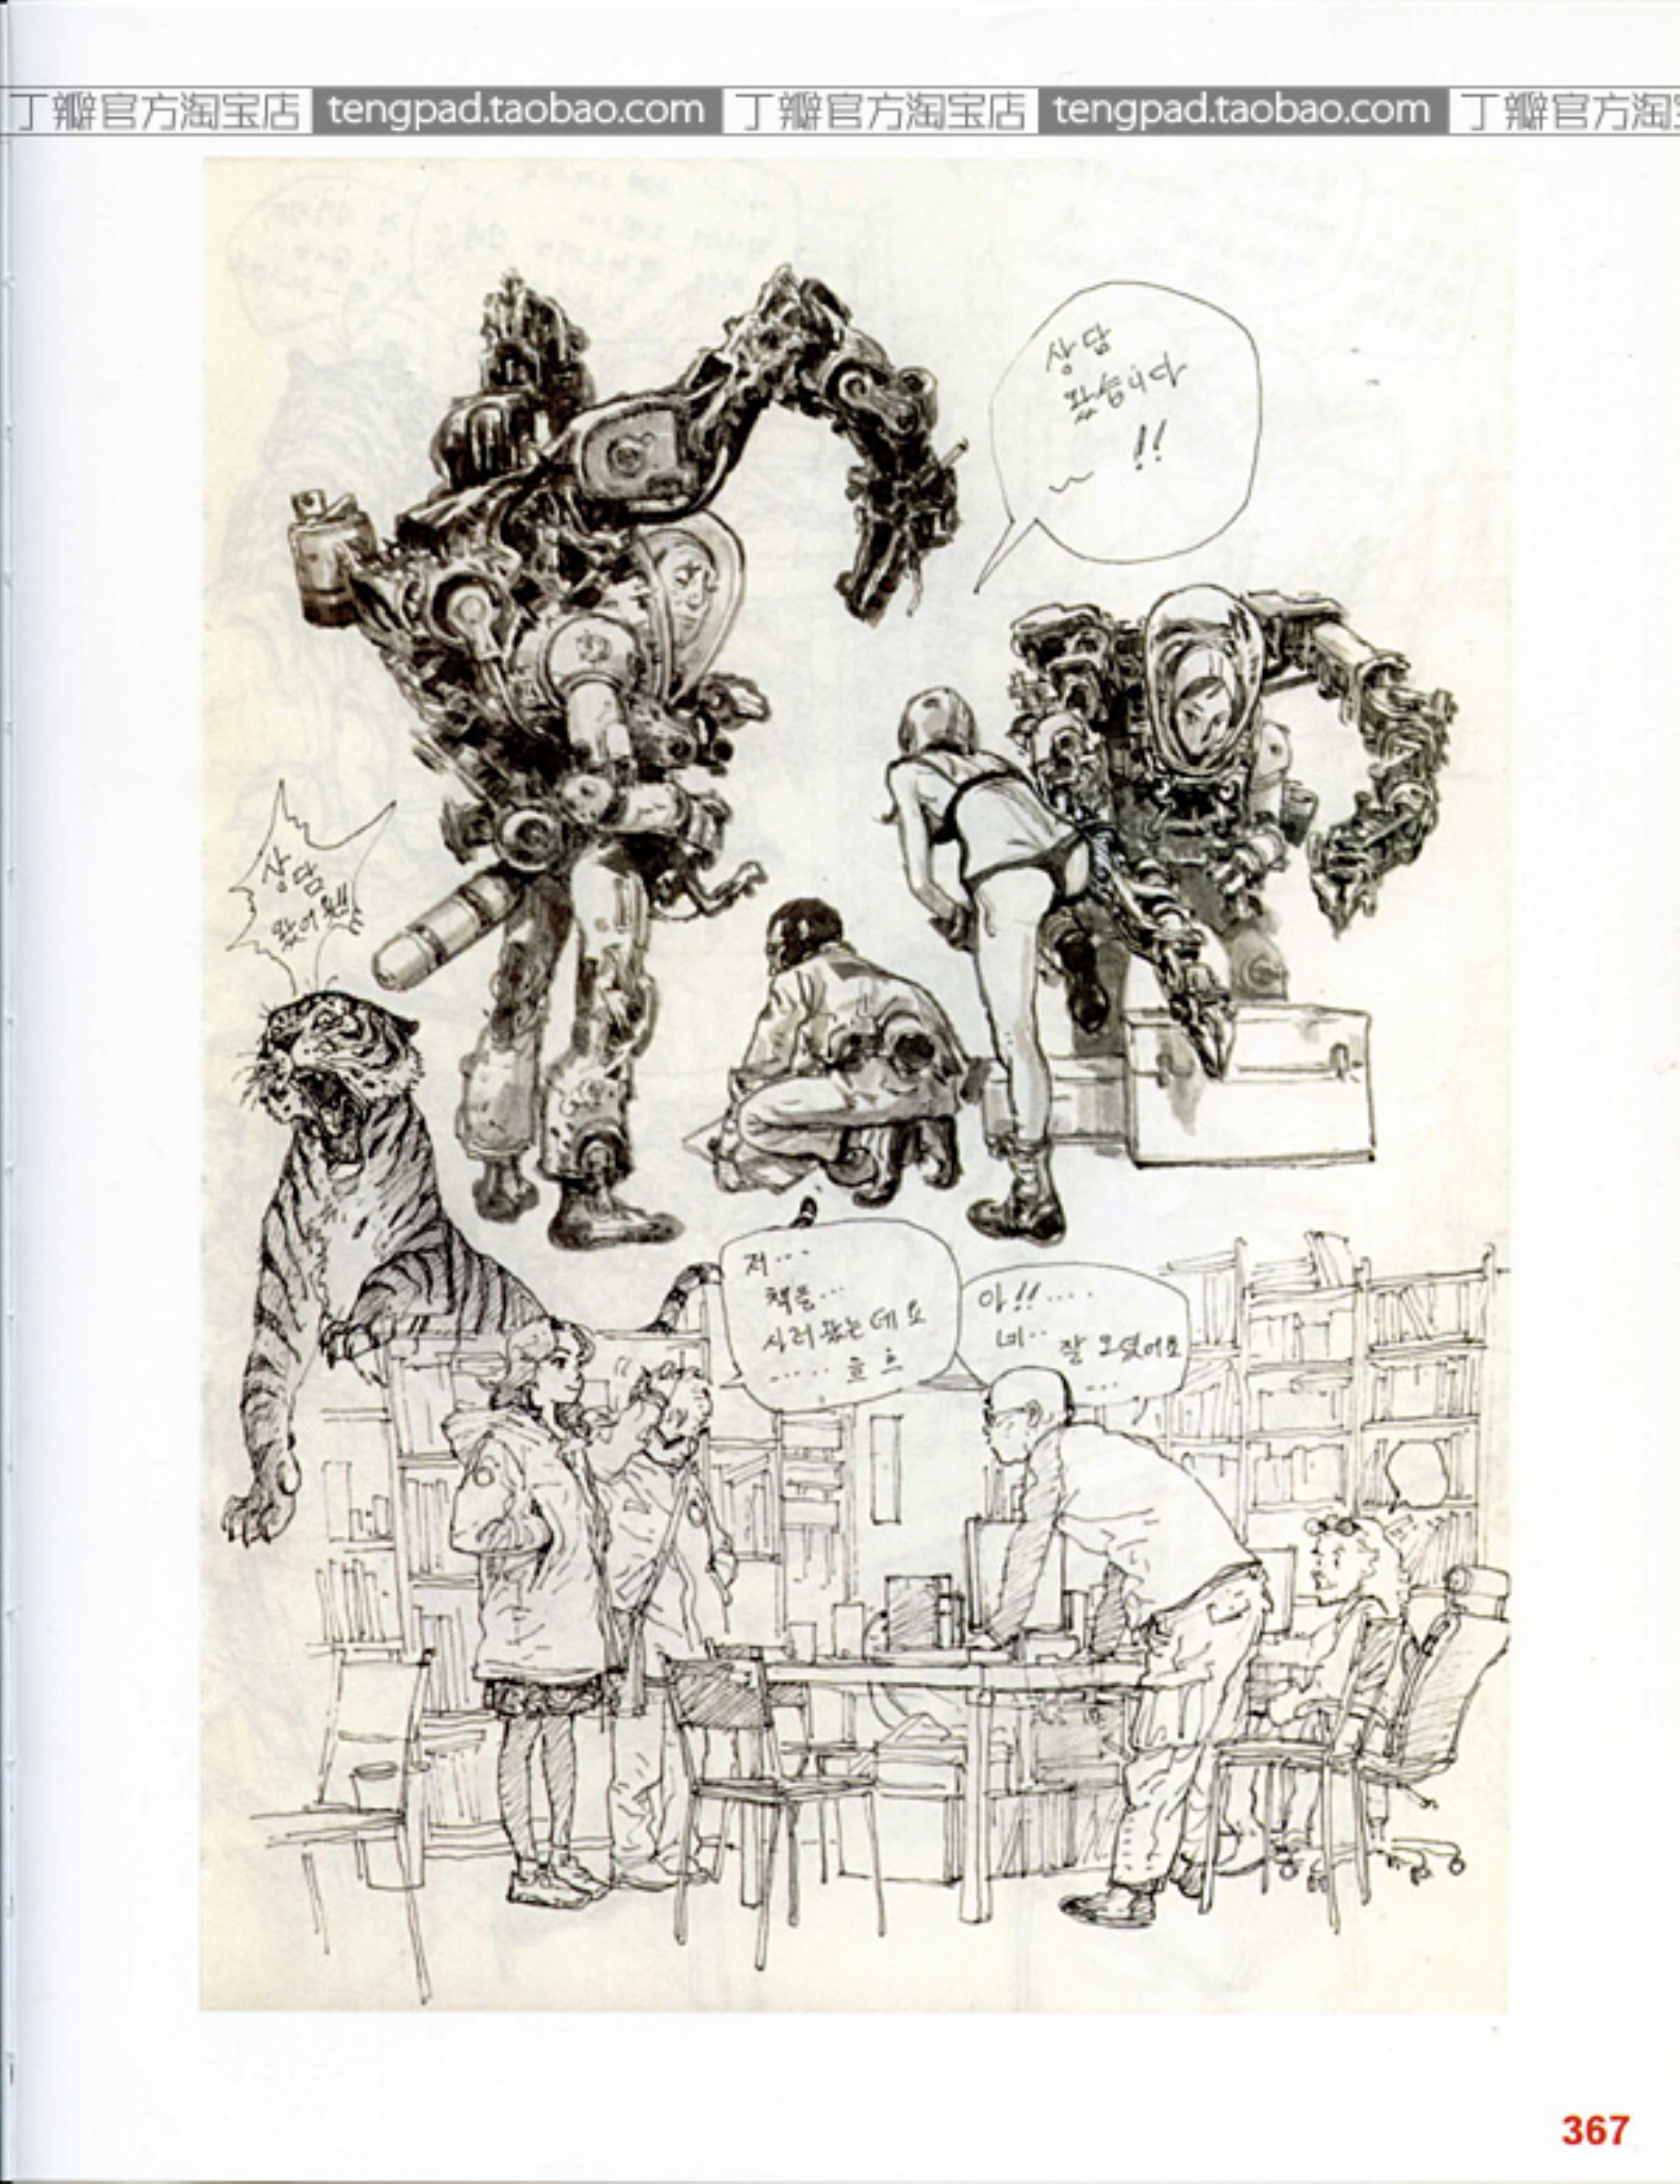 丁瓣官方淘宝店 tengpad.taobao.com 丁瓣官方淘宝店 tengpad.taobao.com 丁瓣官方淘
상담
왔습니다
~ !!
상담
왔어
저...
책을...
시러 왔는데요
..... 흐흐
아!!....
네.. 잘 오셨어요
...
367